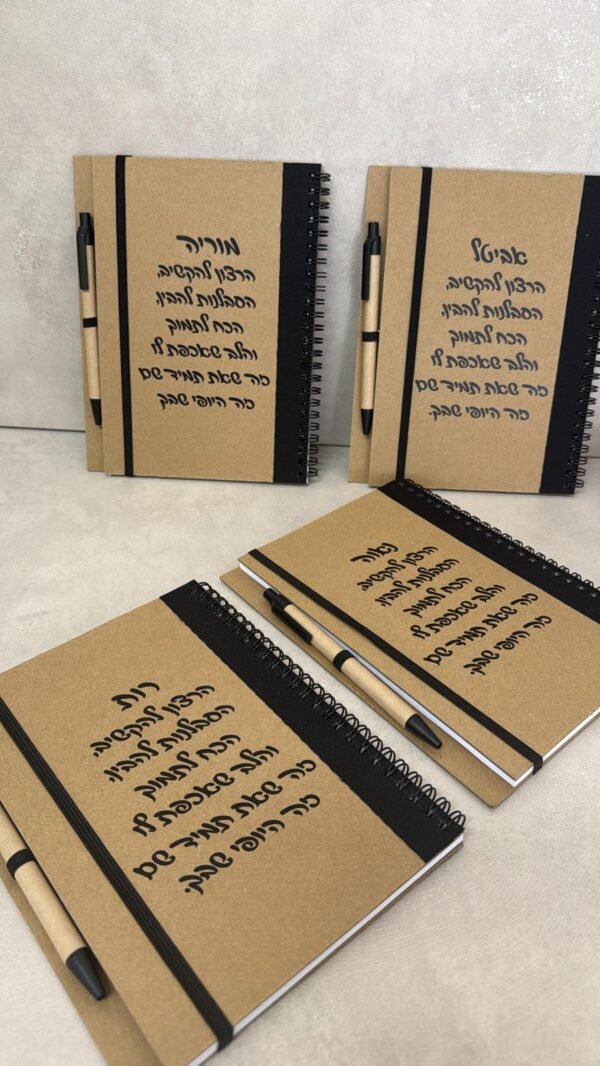 מוריה
הרצון להקשיב,
הסבלנות להבין,
הכח לתמוך
והלב שאכפת לו
כה שאת תמיד שם
כה היופי שבך.
אביטל
הרצון להקשיב,
הסבלנות להבין,
הכח לתמוך
והלב שאכפת לו
כה שאת תמיד שם
כה היופי שבך.
נאוה
הרצון להקשיב,
הסבלנות להבין,
הכח לתמוך
והלב שאכפת לו
כה שאת תמיד שם
כה היופי שבך.
רות
הרצון להקשיב,
הסבלנות להבין,
הכח לתמוך
והלב שאכפת לו
כה שאת תמיד שם
כה היופי שבך.